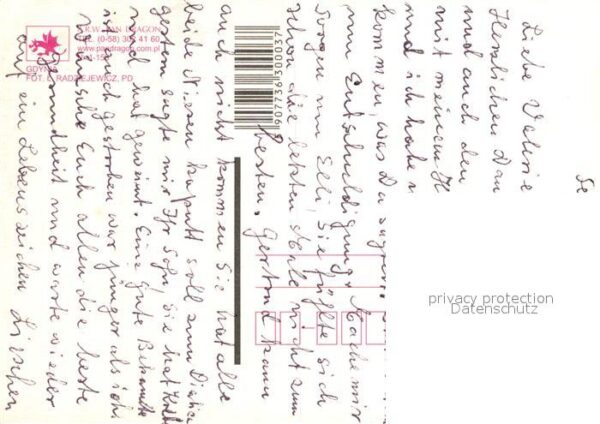 Liebe Valerie
Herzlichen Dan
und auch den
mit meinem H
und ich habe
kommen, was Du sagen.
um Entschuldigung. Mache mir
Sorge um Elli, Sie fühlte sich
schon die letzten Male nicht zum
Besten. Gertrud kann
auch nicht kommen Sie hat alle
beide Nieren kaputt soll zum
gestern sagte mir Ihr Sohn, sie hat
und hat geweint. Eine gute Bekannte
ist auch gestorben war jünger als ich
wünsche Euch allen die beste
Gesundheit und warte wieder
auf ein Lebenszeichen Lieschen
Se
P.R.W. PAN DRAGON
TEL. (0-58) 305 41 60
www.pandragon.com.pl
GDYNIA
FOT. RADZIEJEWICZ, PD
9077363000037
privacy protection
Datenschutz